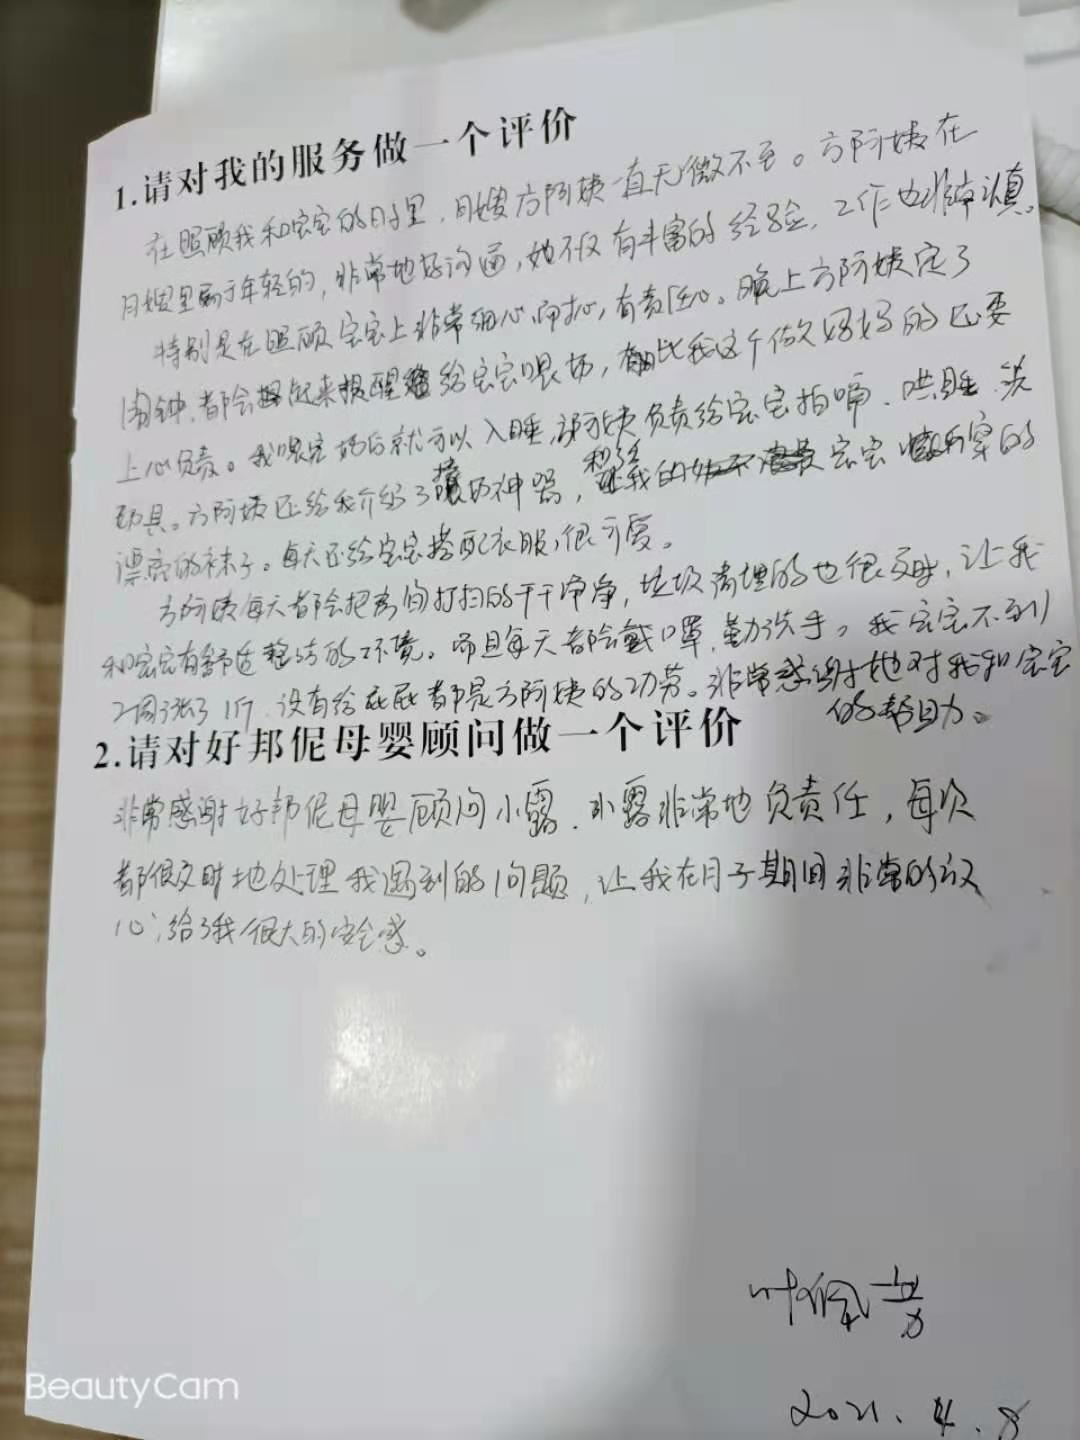 1.请对我的服务做一个评价
在照顾我和宝宝的日子里,月嫂方阿姨一直无微不至。方阿姨在
月嫂里属于年轻的,非常地好沟通,她不仅有丰富的经验,工作也非常认真。
特别是在照顾宝宝上非常细心、耐心,有责任心。晚上方阿姨定了
闹钟,都会起来提醒给宝宝喂奶,比我这个做妈妈的还要
上心负责。我喂完奶后就可以入睡,方阿姨负责给宝宝拍嗝、哄睡、洗
玩具。方阿姨还给我介绍了奶神器,我的宝宝所穿的
漂亮的袜子。每天还给宝宝搭配衣服,很可爱。
方阿姨每天都会把房间打扫的干干净净,垃圾清理的也很及时,让我
和宝宝有舒适整洁的环境。而且每天都会戴口罩,勤洗手。我宝宝不到
2周涨了1斤,没有红屁屁都是方阿姨的功劳。非常感谢她对我和宝宝
的帮助。
2.请对好邦伲母婴顾问做一个评价
非常感谢好邦伲母婴顾问小露,小露非常地负责任,每次
都很及时地处理我遇到的问题,让我在月子期间非常的放
心,给了我很大的安全感。
2021.4.8
BeautyCam